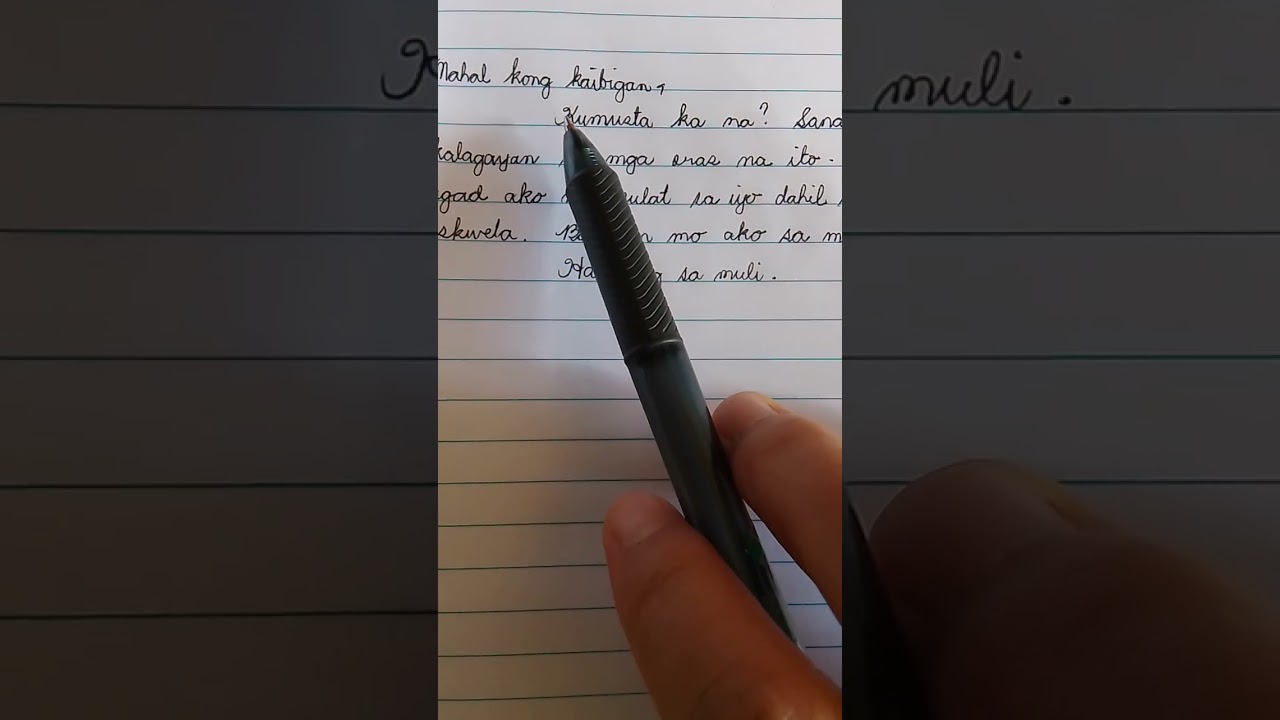 Mahal kong kaibigan,
Kumusta ka na? Sana
kalagayan mga oras na ito.
gad ako sa iyo dahil
skwela. mo ako sa
sa muli.
muli.